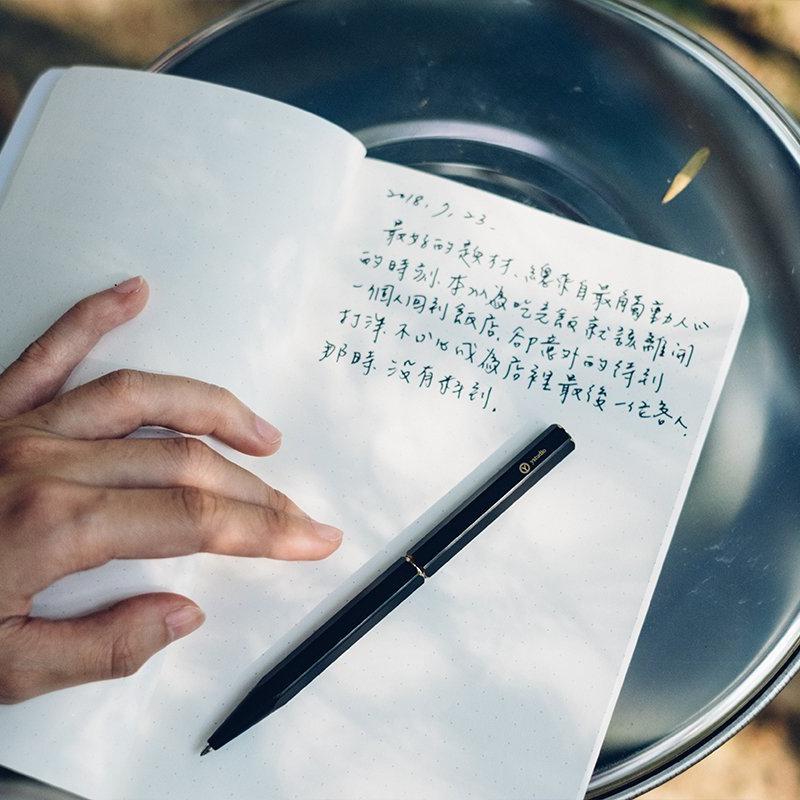 2018.9.23.
最好的題材、總來自最觸動人心
的時刻.本以為吃完飯就該離開
一個人回到飯店.卻意外的待到
打烊.不小心成為店裡最後一位客人.
那時.沒有料到.
ystudio